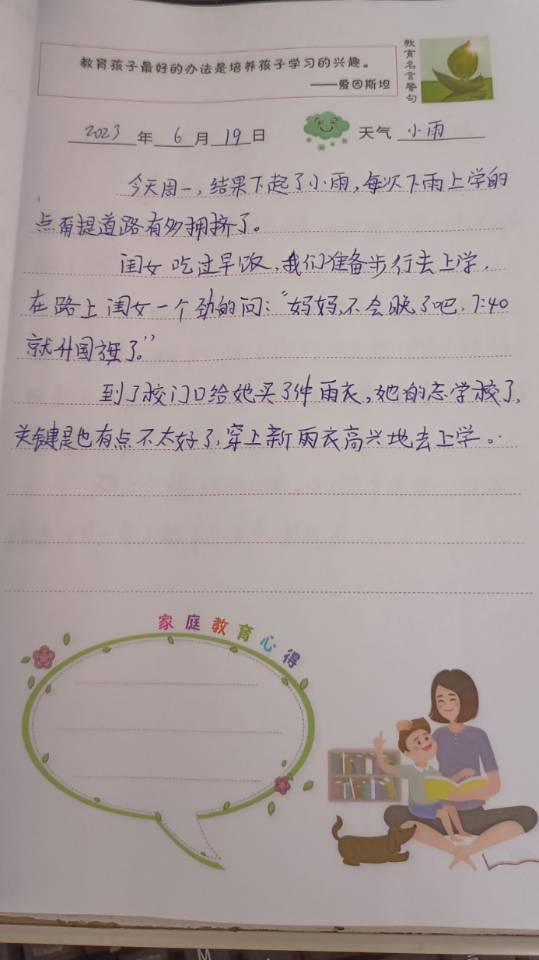 教育孩子最好的办法是培养孩子学习的兴趣。
——爱因斯坦
教育名言警句
2023年6月19日 天气 小雨
今天周一，结果下起了小雨，每次下雨上学的
点再提道路有多拥挤了。
闺女吃过早饭，我们准备步行去上学，
在路上闺女一个劲的问："妈妈，不会晚了吧，7:40
就升国旗了。"
到了校门口给她买了件雨衣，她的忘学校了，
关键是也有点不太好了，穿上新雨衣高兴地去上学。
家庭教育心得